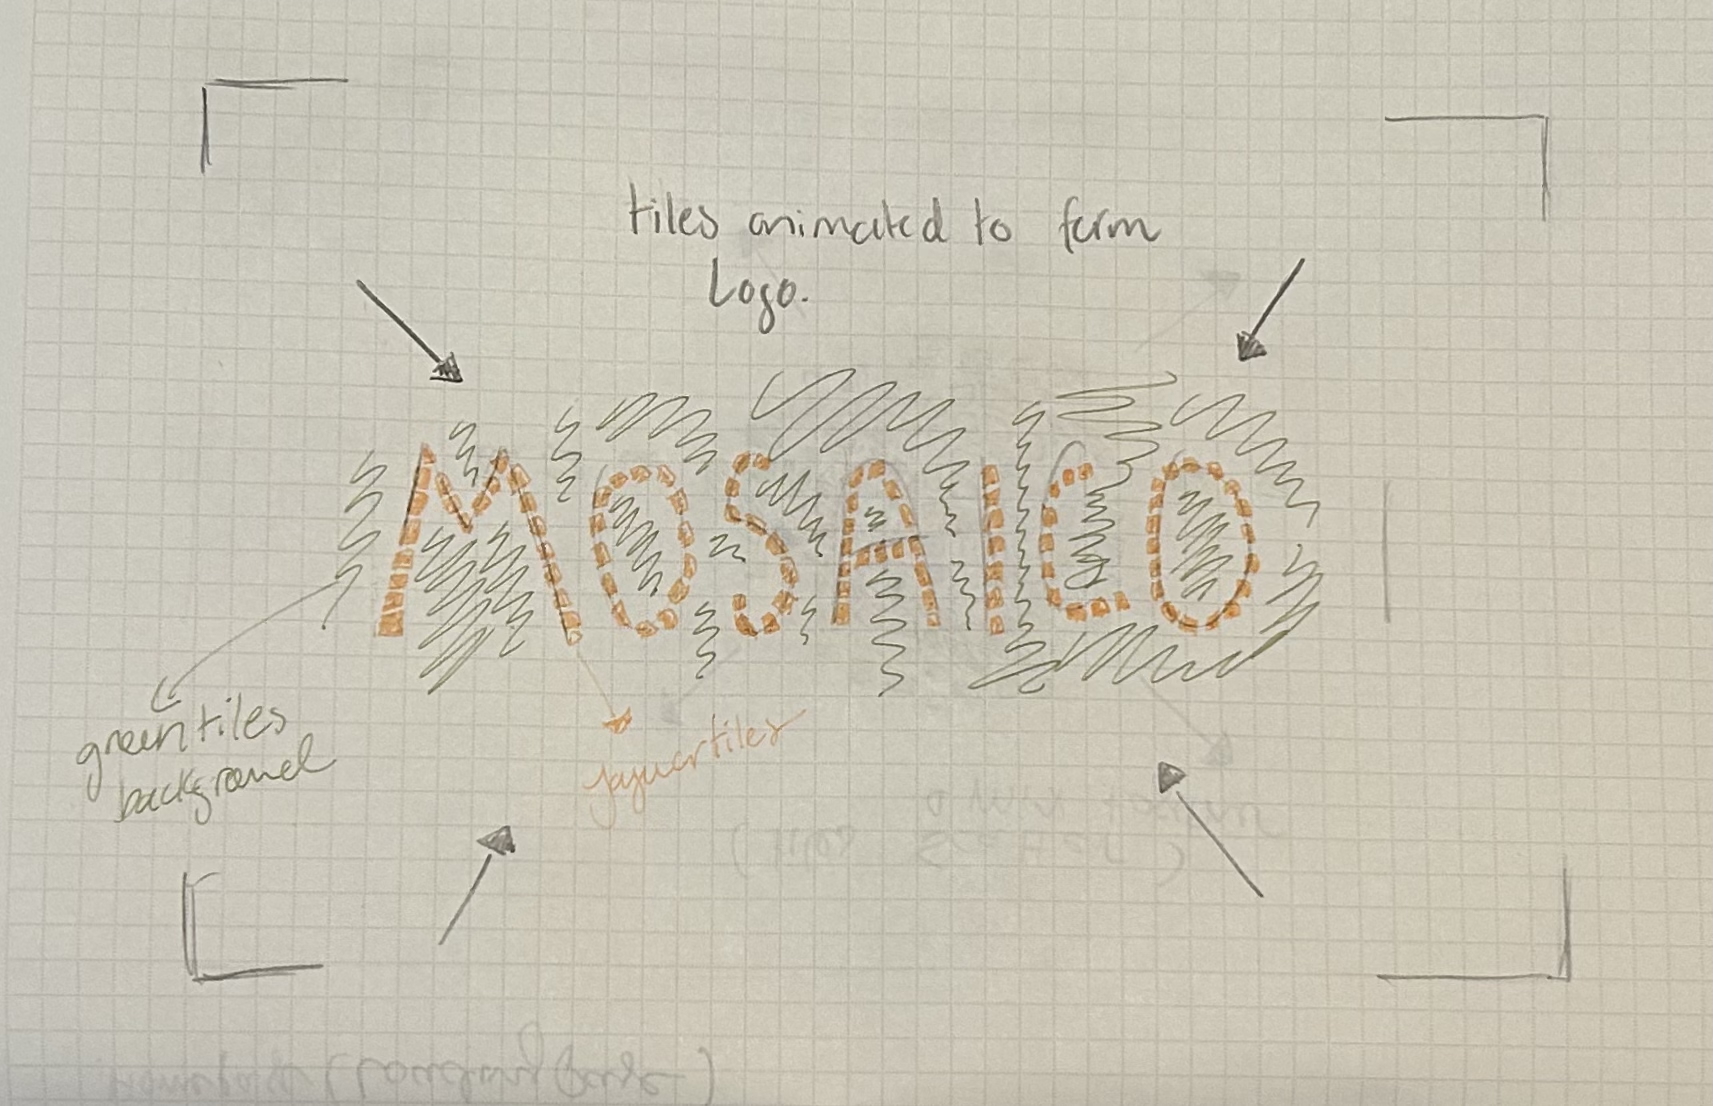 tiles animated to form
Logo.
MOSAICO
green tiles
background
tiles